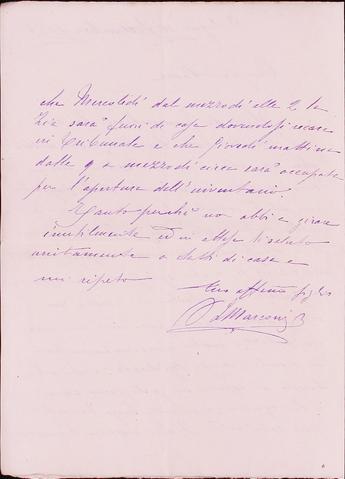 che Mercoledì dal mezzodì alle 2 la
zia sarà fuori di casa dovendosi recare
in Tribunale e che giovedì mattina
dalle 9 a mezzodì circa sarà occupata
per l'apertura dell'inventario.
Tanto perché non abbi a girare
inutilmente ed in attesa ti saluto
unitamente a tutti di casa e
mi ripeto
tuo affmo
Marconi